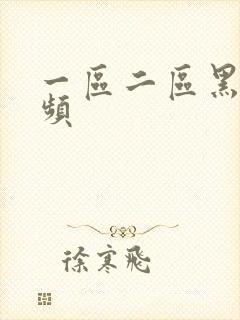 一區二區黑
頻
徐寒飛